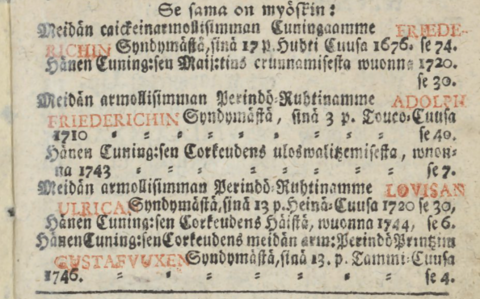 Se sama on myöskin:
Meidän caickeinarmollisimman Cuningaamme FRIEDE-
RICHIN Syndymästä, sinä 17 p. Huhti Cuusa 1676. se 74.
Hänen Cuning:sen Maij:tins crunnamisesta wuonna 1720.
se 30.
Meidän armollisimman Perindö-Ruhtinamme ADOLPH
FRIEDERICHIN Syndymästä, sinä 3 p. Touco-Cuusa
1710 - - - - - - - se 40.
Hänen Cuning:sen Corkeudens uloswalitzemisesta, wuon-
na 1743 - - - - - - - se 7.
Meidän armollisimman Perindö-Ruhtinamme LOVISAN
ULRICAN Syndymästä, sinä 13 p. Heinä-Cuusa 1720 se 30,
Hänen Cuning:sen Corkeudens Häistä, wuonna 1744, se 6.
Hänen Cuning:sen Corkeudens meidän arm: Perindö Printzin
GUSTAFVUXEN Syndymästä, sinä 13. p. Tammi-Cuusa
1746. - - - - - - - se 4.